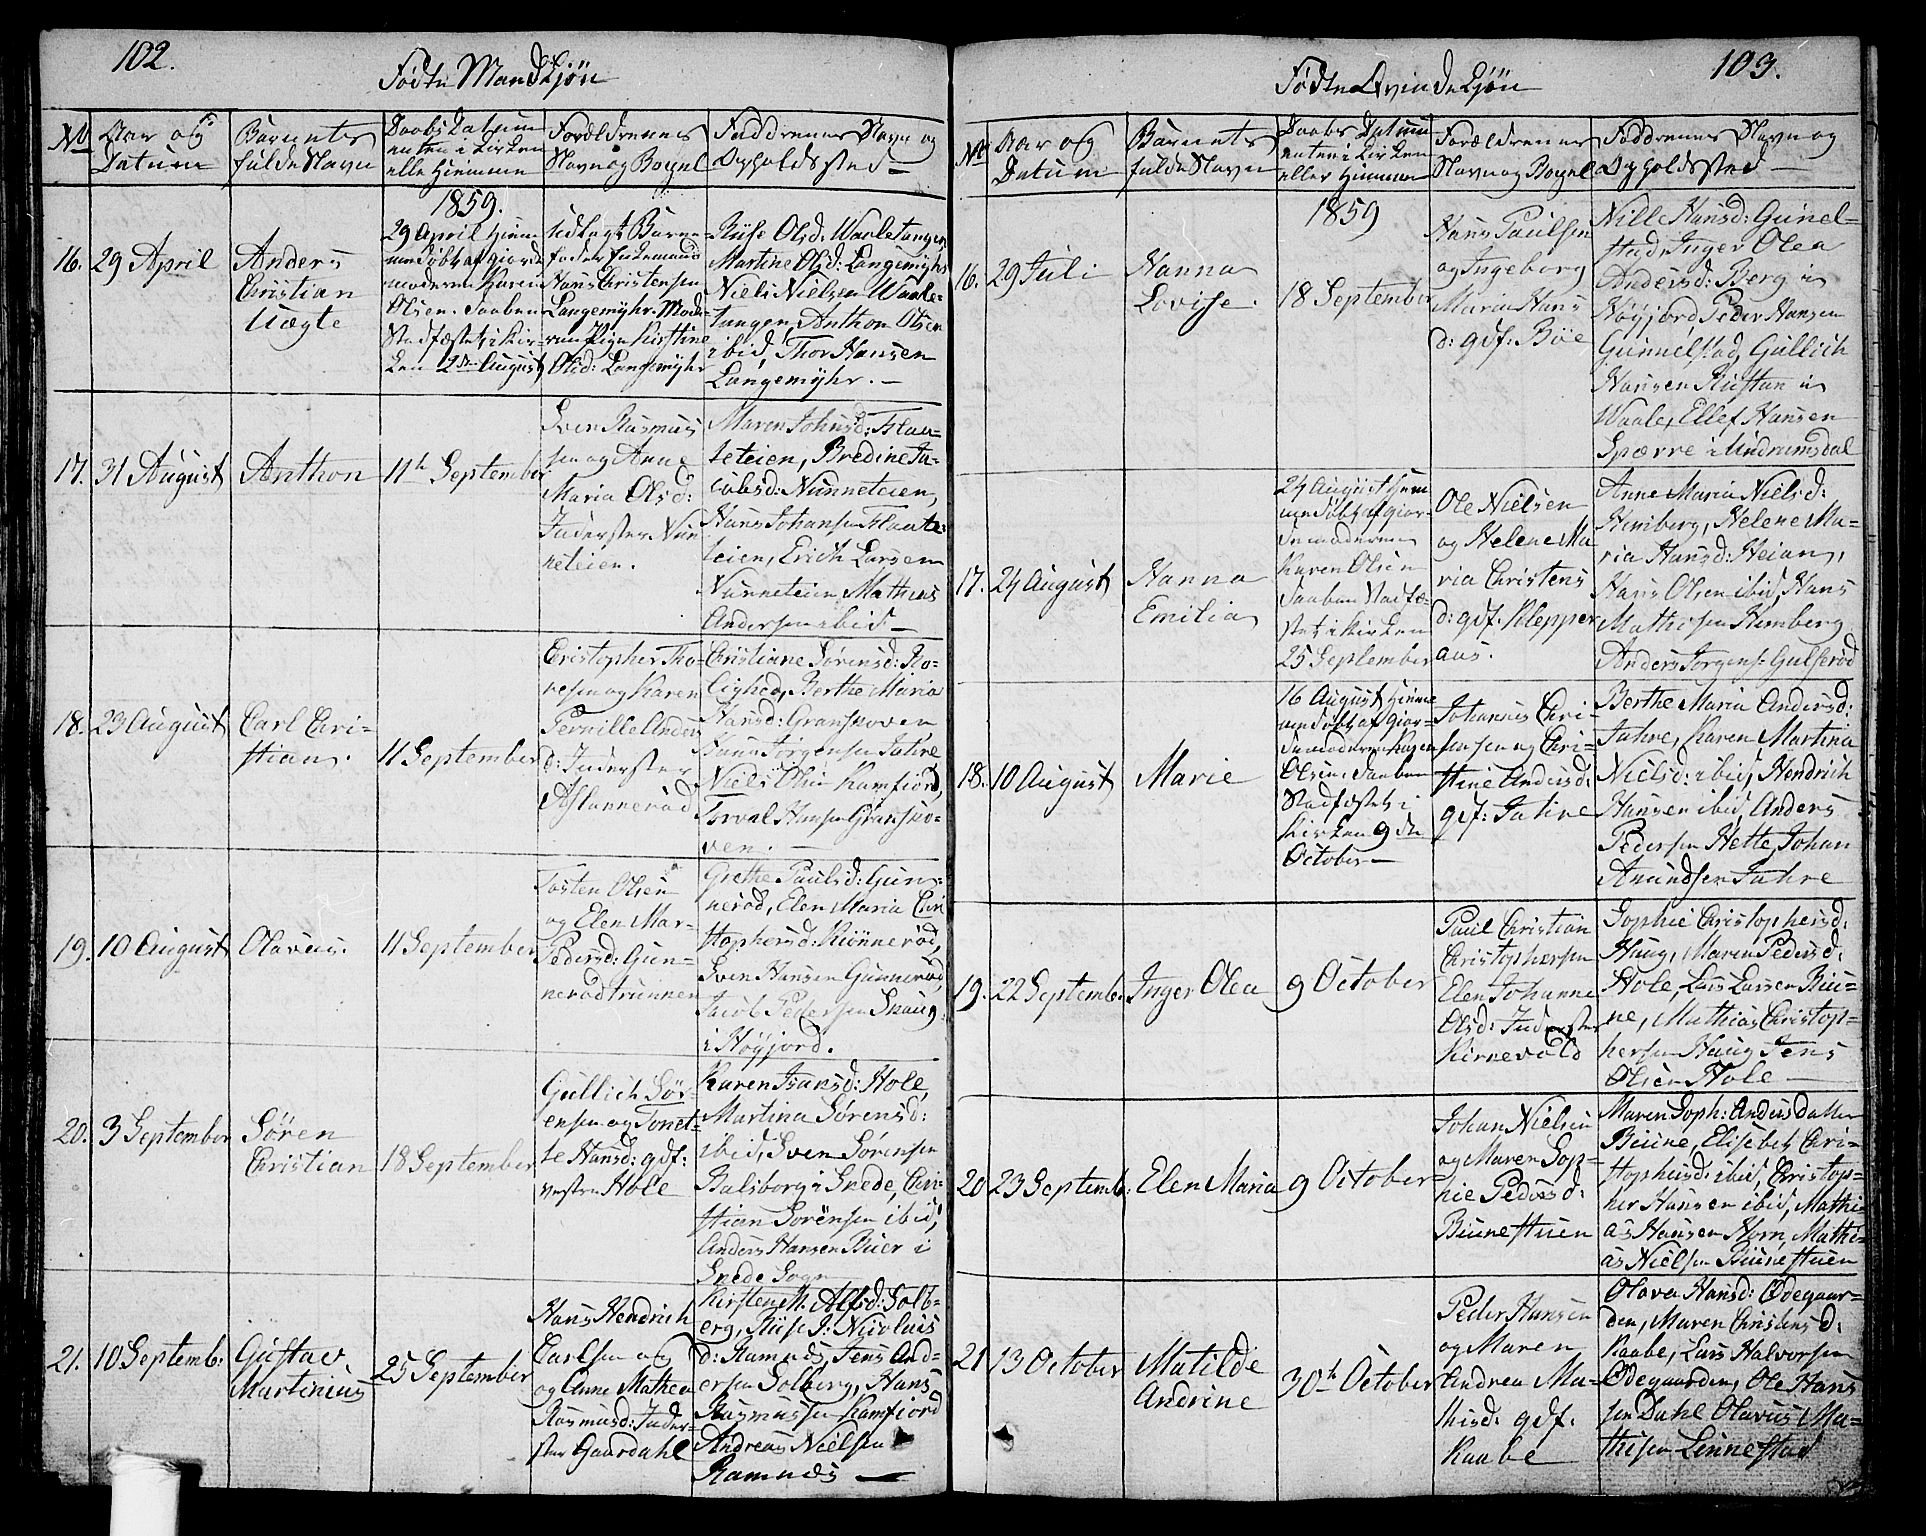 102.
Fødte Mandkjøn
No
Aar og
Datum
Barnets
fulde Navn
Daabs Datum
enten i Kirken
elle Hiemme
Forældrenes
Navn og Bopel
Faddrenes Navn og
Opholdssted
1859.
16.
29 April
Anders
Christian
Uægte
29 April Hiem-
medøbt af giorde
moderen Karen
Olsen. Daaben
Stadfæstet i Kir-
ken 2den August
Udlagt Barne-
fader Enkemand
Hans Christensen
Langemyhr. Mode-
ren Pige Kirstine
Olsd: Langemyhr
Olsd: Waaletangen
Martine Olsd: Langemyhr
Niels Nielsen Waale-
tangen, Anthon Olsen
ibid, Thor Hansen
Langemyhr. —
17.
31 August
Anthon
11th September
Sven Rasmus
sen og Anne
Maria Olsd:
Inderster Nun
neteien.
Maren Johnsd: Flaa-
teteien, Bredine Ja-
cobsd: Nunneteien,
Hans Johansen Flaate-
teien, Erich Larsen
Nunneteien Mathias
Andersen ibid —
18.
23 August
Carl Chri-
stian.
11 September
Cristopher Tho-
resen og Karen
Pernille Anders
d: Inderster
Aslannerød
Christiane Sørensd: Ro-
lighed, Berthe Maria
Hansd: Granskoven
Hans Jørgensen Jahre
Niels Olsen Kamfjord,
Torval Hansen Gransko-
ven. —
19.
10 August
Olavus.
11 September
Tosten Olsen
og Elen Mar-
Pedersd: Gun-
nerødtrunnen
Grethe Paulsd: Gun-
nerød, Elen Maria Chri
stophersd: Kiønnerød,
Sven Hansen Gunnerød,
Jacob Pedersen Skaug
i Høyjord.
20.
3 September
Søren
Christian
18 September
Gullich Sør-
ensen og Tonet-
te Hansd: gdf:
vestre Hole
Karen Isansd: Hole,
Martina Sørensd:
ibid, Sven Sørensen
Balsborg i Snede, Chri-
stian Sørensen ibid,
Anders Hansen Buer i
Snede Sogn
21.
10 Septemb:
Gustav
Martinius
25 September
Hans Hendrich
Carlsen og
og Anne Mathea
Rasmusd: Inder-
ster Gaardahl
Kirsten M. Alfsd: Solb-
erg, Nicolais
d: Ramnæs, Jens And-
ersen Solberg, Hans
Rasmussen Kamfjord
Andreas Nielsen
Ramnæs —
103.
Fødte Qvindekjøn
No
Aar og
Datum
Barnets
fulde Navn
Daabs Datum
enten i Kirken
eller Hiemme
Forældrenes
Navn og Bopel
Faddrenes Navn og
Opholdssted —
1859
16.
29 Juli
Hanna
Lovise.
18 September
Hans Paulsen
og Ingeborg
Maria Hans
d: gdf: Bøe
Nille Hansd: Gunel-
stad, Inger Olea
Andersd: Berg i
Høyjord, Peder Hansen
Gunnelstad, Gullich
Hansen Rustan i
Waale, Ellef Hansen
Spærre i Undrumsdal
17.
24 August
Hanna
Emilia
24 August Hiem
medøbt af gior-
demoderen
Karen Olsen
Daaben Stadfæ-
stet i Kirken
25 September
Ole Nielsen
og Helene Ma
ria Christens
d: gdf. Klepper
aas.
Anne Maria Nielsd:
Kimberg, Helene Ma-
ria Hansd: Heian,
Hans Olsen ibid, Hans
Mathisen Kimberg
Anders Jørgens: Gulserød
18.
10 August
Marie
16 August Hiem
medøbt af gior-
demoderen Karen
Olsen, Daaben
Stadfæstet i
Kirken 9de
October —
Johannes Chri-
sensen og Chri-
stine Andersd:
gdf: Jahre
Berthe Maria Andersd:
Jahre, Karen Martina
Nielsd: ibid, Hendrich
Hansen ibid, Anders
Pedersen Hette, Johan
Amundsen Jahre
19.
22 Septemb.
Inger Olea
9 October
Paul Christian
Christophersen
Elen Johanne
Olsd: Inderster
Kirnevold
Sophie Christophersd:
Haug, Maren Pedersd:
Hole, Lars Larsen Biu-
ne, Mathias Christop-
hersen Haug Jens
Olsen Hole —
20
23 Septemb:
Elen Maria
9 October
Johan Nielsen
og Maren Sop-
hie Pedersd:
Biunestuen
Maren Soph: Andersdatter
Biune, Elisebet Chri-
stophersd: ibid, Christop-
her Hansen ibid, Mathi-
as Hansen Horn, Mathi-
as Nielsen Biunestuen
21
13 October
Matilde
Andrine
30th October
Peder Hansen
og Maren
Andrea Ma-
thisd: gdf:
Raabe
Olava Hansd: Ødegaar-
den, Maren Christensd:
Raabe, Lars Halvorsen
Ødegaarden, Ole Hans
sen Dahl Olavus Ma-
thisen Linnestad